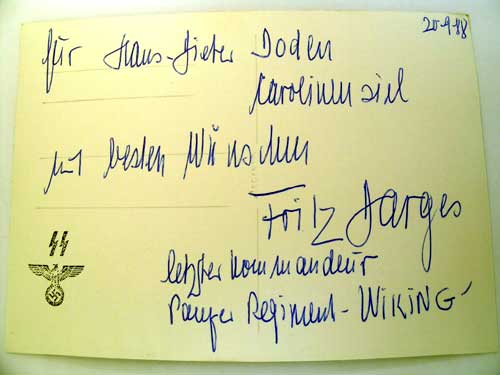 20-9-88
für Hans-Dieter Doden
Carolinensiel
mit besten Wünschen
Fritz Darges
letzter Kommandeur
Panzer Regiment - WIKING -